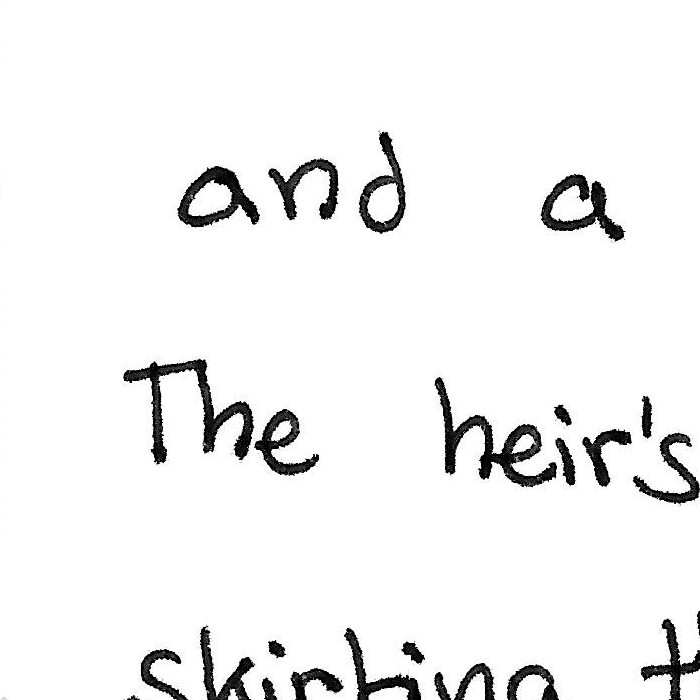 and a
The heir's
skirting